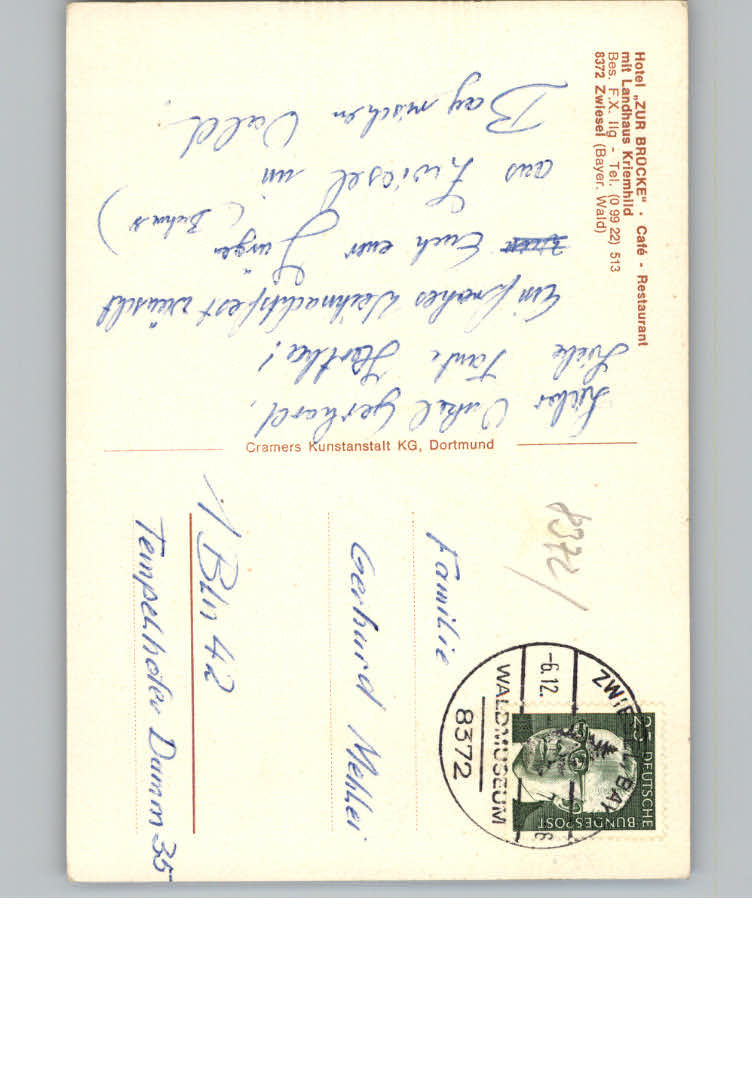 Hotel „ZUR BRÜCKE" · Café - Restaurant
mit Landhaus Kriemhild
Bes. F.X. Ilg - Tel. (0 99 22) 513
8372 Zwiesel (Bayer. Wald)
Lieber Onkel Gerhard,
Liebe Tante Hertha!
Ein frohes Weihnachtsfest wünscht
Euch euer Jürgen
aus Zwiesel im
Bayrischen Wald.
Cramers Kunstanstalt KG, Dortmund
8372/
ZWIE BAY
-6.12.
WALDMUSEUM
8372
25
DEUTSCHE
BUNDESPOST
Familie
Gerhard
1 Bln 42
Tempelhofer Damm 35